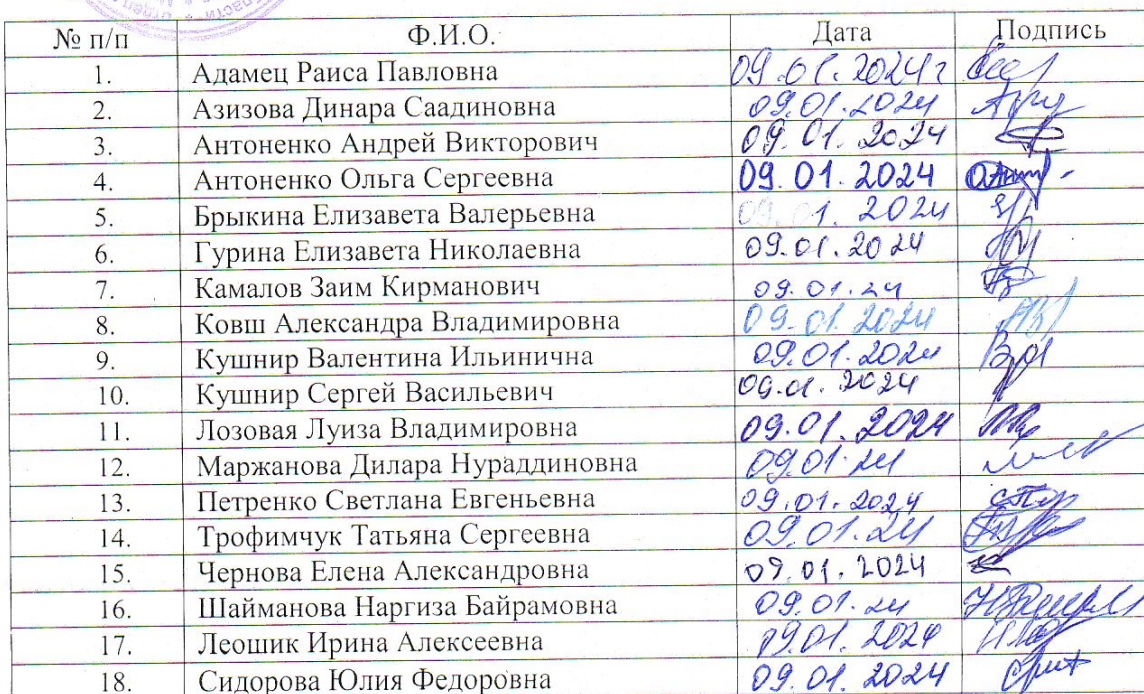 № п/п Ф.И.О. Дата Подпись
1. Адамец Раиса Павловна 09.01.2024г
2. Азизова Динара Саадиновна 09.01.2024
3. Антоненко Андрей Викторович 09.01.2024
4. Антоненко Ольга Сергеевна 09.01.2024
5. Брыкина Елизавета Валерьевна 09.01.2024
6. Гурина Елизавета Николаевна 09.01.2024
7. Камалов Заим Кирманович 09.01.24
8. Ковш Александра Владимировна 09.01.2024
9. Кушнир Валентина Ильинична 09.01.2024
10. Кушнир Сергей Васильевич 09.01.2024
11. Лозовая Луиза Владимировна 09.01.2024
12. Маржанова Дилара Нураддиновна 09.01.24
13. Петренко Светлана Евгеньевна 09.01.2024
14. Трофимчук Татьяна Сергеевна 09.01.24
15. Чернова Елена Александровна 09.01.2024
16. Шайманова Наргиза Байрамовна 09.01.24
17. Леошик Ирина Алексеевна 09.01.2024
18. Сидорова Юлия Федоровна 09.01.2024